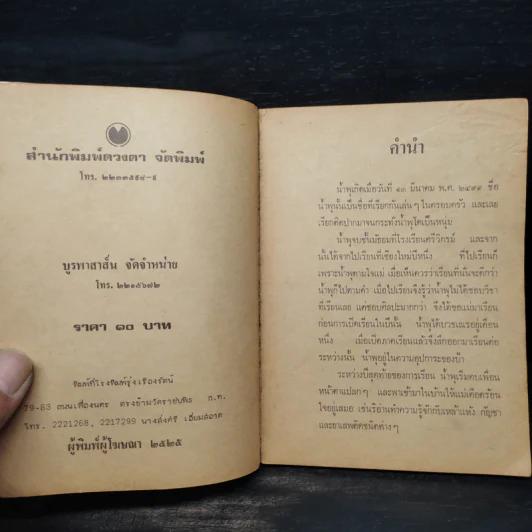 สำนักพิมพ์ดวงตา จัดพิมพ์
โทร. ๒๒๓๓๕๕๔-๕
บูรพาสาส์น จัดจำหน่าย
โทร. ๒๒๑๕๖๗๒
ราคา ๑๐ บาท
พิมพ์ที่โรงพิมพ์รุ่งเรืองรัตน์
79-83 ถนนเฟื่องนคร ตรงข้ามวัดราชบพิธ ก.ท.
โทร. 2221268, 2217299
ผู้พิมพ์ผู้โฆษณา ๒๕๒๕
คำนำ
น้ำพุเกิดเมื่อวันที่ ๑๓ มีนาคม พ.ศ. ๒๔๙๙ ชื่อ
น้ำพุนั้นเป็นชื่อที่เรียกกันเล่น ๆ ในครอบครัว และเลย
เรียกติดปากมาจนกระทั่งน้ำพุโตเป็นหนุ่ม
น้ำพุจบชั้นมัธยมที่โรงเรียนศรีวิกรม์ และจาก
นั้นได้จากไปเรียนที่เชียงใหม่ปีหนึ่ง ที่ไปเรียนก็
เพราะน้ำพุตามใจแม่ เมื่อเห็นควรว่าเรียนที่นั่นจะดีกว่า
น้ำพุก็ไปตามคำ เมื่อไปเรียนจึงรู้ว่าน้ำพุไม่ได้ชอบวิชา
ที่เรียนเลย แต่ชอบศิลปะมากกว่า จึงได้ขอแม่มาเรียน
ก่อนการเปิดเรียนในปีนั้น น้ำพุได้บวชเณรอยู่เดือน
หนึ่ง เมื่อเปิดภาคเรียนแล้วจึงสึกออกมาเรียนต่อ
ระหว่างนั้น น้ำพุอยู่ในความอุปการะของป้า
ระหว่างปีสุดท้ายของการเรียน น้ำพุเริ่มคบเพื่อน
หน้าตาแปลกๆ และพาเข้ามาในบ้านให้แม่เดือดร้อน
ใจอยู่เสมอ เช่นริอ่านทำความรู้จักกับเหล้าแห้ง กัญชา
และยาเสพติดชนิดต่าง ๆ